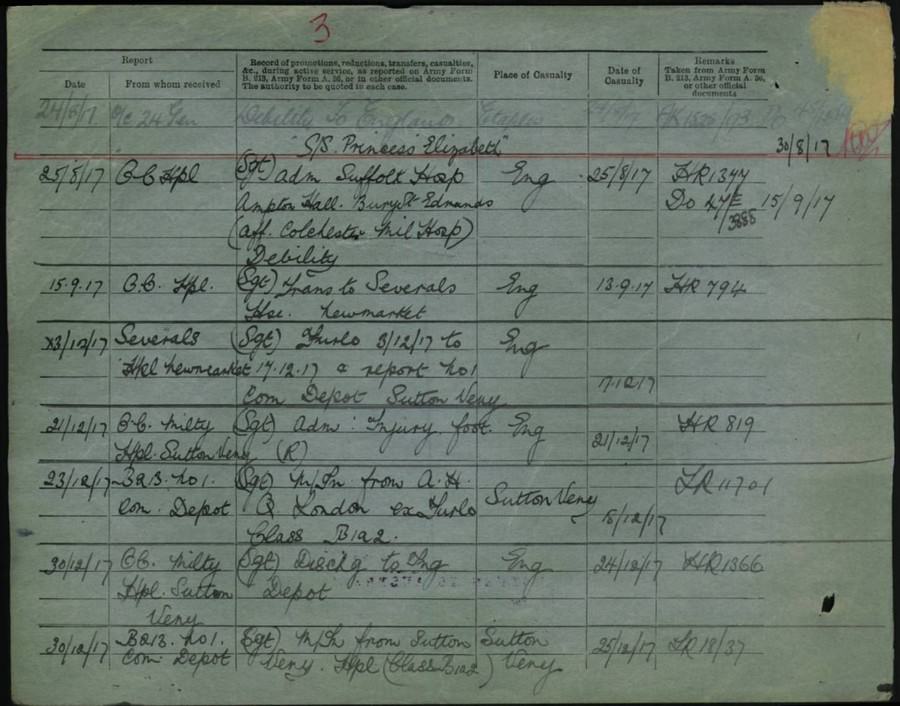 3
Report
Record of promotions, reductions, transfers, casualties, &c., during active service, as reported on Army Form B. 213, Army Form A. 36, or in other official documents. The authority to be quoted in each case.
Place of Casualty
Date of Casualty
Remarks Taken from Army Form B. 213, Army Form A. 36, or other official documents
Date
From whom received
24 Gen Debility To England Etaples
"S/S. Princess Elizabeth"
30/8/17
25/8/17 O.C Hpl (Sgt) adm Suffolk Hosp Eng 25/8/17 HR1377
Ampton Hall. Bury St Edmunds Do 15/9/17
(aff. Colchester Mil Hosp) 3888
Debility
15.9.17 O.C. Hpl. (Sgt) Trans to Severals Eng 13.9.17 HR 794
Hse. Newmarket
13/12/17 Severals (Sgt) Furlo 8/12/17 to Eng
Hpl Newmarket 17.12.17 & report No 1 7.12.17
Com Depot Sutton Veny
21/12/17 O.C. Milty (Sgt) adm : Injury foot. Eng 21/12/17 HR 819
Hpl. Sutton Veny (R)
23/12/17 B213. No 1. (Sgt) M/In from A.H. Sutton Veny 18/12/17 LR 11701
Com. Depot Q London ex Furlo
Class B1a2.
30/12/17 OC. Milty (Sgt) Dischg to Eng 24/12/17 HR1366
Hpl. Sutton Depot
Veny
30/12/17 B213. No 1. (Sgt) M/In from Sutton Sutton 25/12/17 LR 18/37
Com. Depot Veny. Hpl (Class B1a2) Veny